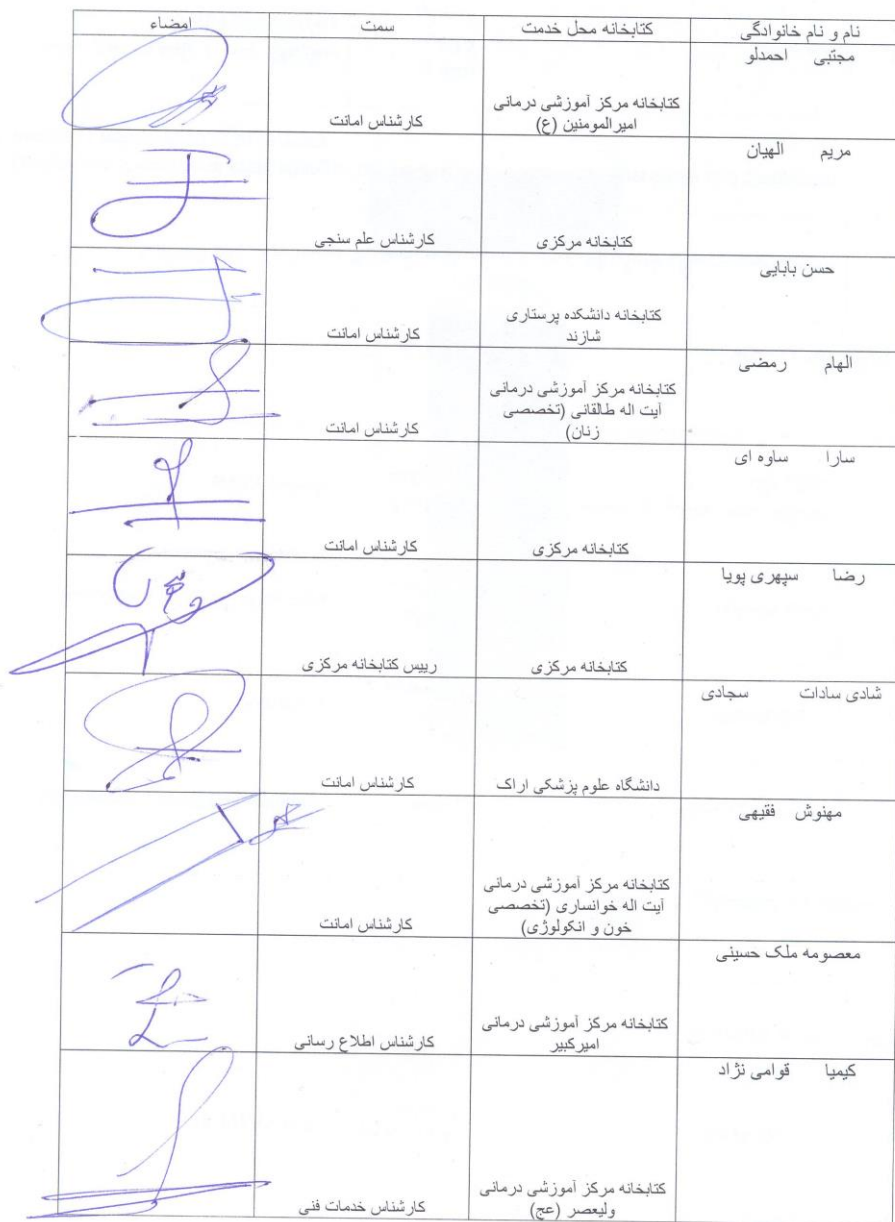 نام و نام خانوادگی	کتابخانه محل خدمت	سمت	امضاء
مجتبی احمدلو
کتابخانه مرکز آموزشی درمانی
امیرالمومنین (ع)	کارشناس امانت
مریم الهیان
کتابخانه مرکزی	کارشناس علم سنجی
حسن بابایی
کتابخانه دانشکده پرستاری
شازند	کارشناس امانت
الهام رمضی
کتابخانه مرکز آموزشی درمانی
آیت اله طالقانی (تخصصی
زنان)	کارشناس امانت
سارا ساوه ای
کتابخانه مرکزی	کارشناس امانت
رضا سپهری پویا
کتابخانه مرکزی	رییس کتابخانه مرکزی
شادی سادات سجادی
دانشگاه علوم پزشکی اراک	کارشناس امانت
مهنوش فقیهی
کتابخانه مرکز آموزشی درمانی
آیت اله خوانساری (تخصصی
خون و انکولوژی)	کارشناس امانت
معصومه ملک حسینی
کتابخانه مرکز آموزشی درمانی
امیرکبیر	کارشناس اطلاع رسانی
کیمیا قوامی نژاد
کتابخانه مرکز آموزشی درمانی
ولیعصر (عج)	کارشناس خدمات فنی